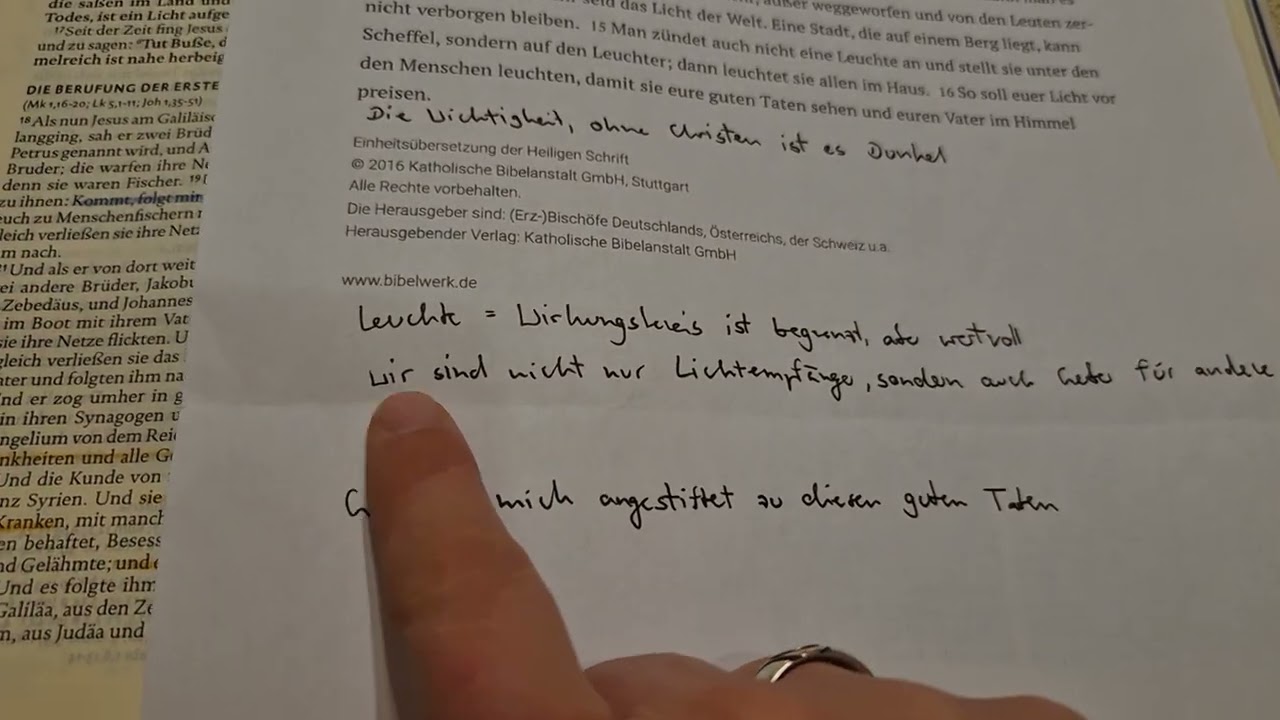 die saßen im Land und
Todes, ist ein Licht aufge
17Seit der Zeit fing Jesus
und zu sagen: "Tut Buße, d
melreich ist nahe herbeig
DIE BERUFUNG DER ERSTE
(Mk 1,16-20; Lk 5,1-11; Joh 1,35-51)
18Als nun Jesus am Galiläisc
langging, sah er zwei Brüd
Petrus genannt wird, und A
Bruder; die warfen ihre Ne
denn sie waren Fischer. 19
zu ihnen: Kommt, folgt mir
euch zu Menschenfischern
leich verließen sie ihre Netz
m nach.
Und als er von dort weit
ei andere Brüder, Jakobu
Zebedäus, und Johannes
im Boot mit ihrem Vat
sie ihre Netze flickten. U
gleich verließen sie das
ater und folgten ihm na
nd er zog umher in g
in ihren Synagogen u
ngelium von dem Reic
nkheiten und alle G
Und die Kunde von
nz Syrien. Und sie
Kranken, mit manch
en behaftet, Besess
nd Gelähmte; und
Und es folgte ihm
Galiläa, aus den Ze
n, aus Judäa und
außer weggeworfen und von den Leuten zer-
seid das Licht der Welt. Eine Stadt, die auf einem Berg liegt, kann
nicht verborgen bleiben. 15 Man zündet auch nicht eine Leuchte an und stellt sie unter den
Scheffel, sondern auf den Leuchter; dann leuchtet sie allen im Haus. 16 So soll euer Licht vor
den Menschen leuchten, damit sie eure guten Taten sehen und euren Vater im Himmel
preisen.
Die Wichtigkeit, ohne Christen ist es Dunkel
Einheitsübersetzung der Heiligen Schrift
© 2016 Katholische Bibelanstalt GmbH, Stuttgart
Alle Rechte vorbehalten.
Die Herausgeber sind: (Erz-)Bischöfe Deutschlands, Österreichs, der Schweiz u.a.
Herausgebender Verlag: Katholische Bibelanstalt GmbH
www.bibelwerk.de
Leuchte = Wirkungskreis ist begrenzt, aber wertvoll
wir sind nicht nur Lichtempfänger, sondern auch Geber für andere
G mich angestiftet zu diesen guten Taten